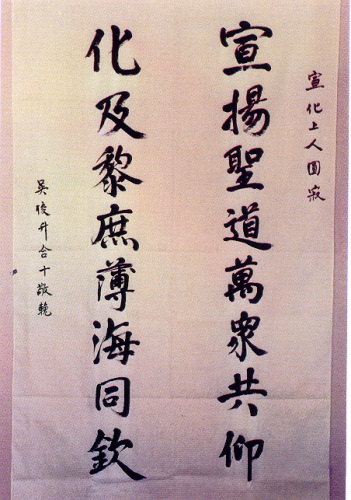 宣化上人圓寂
宣揚聖道萬眾共仰
化及黎庶薄海同欽
吳晙升合十敬輓